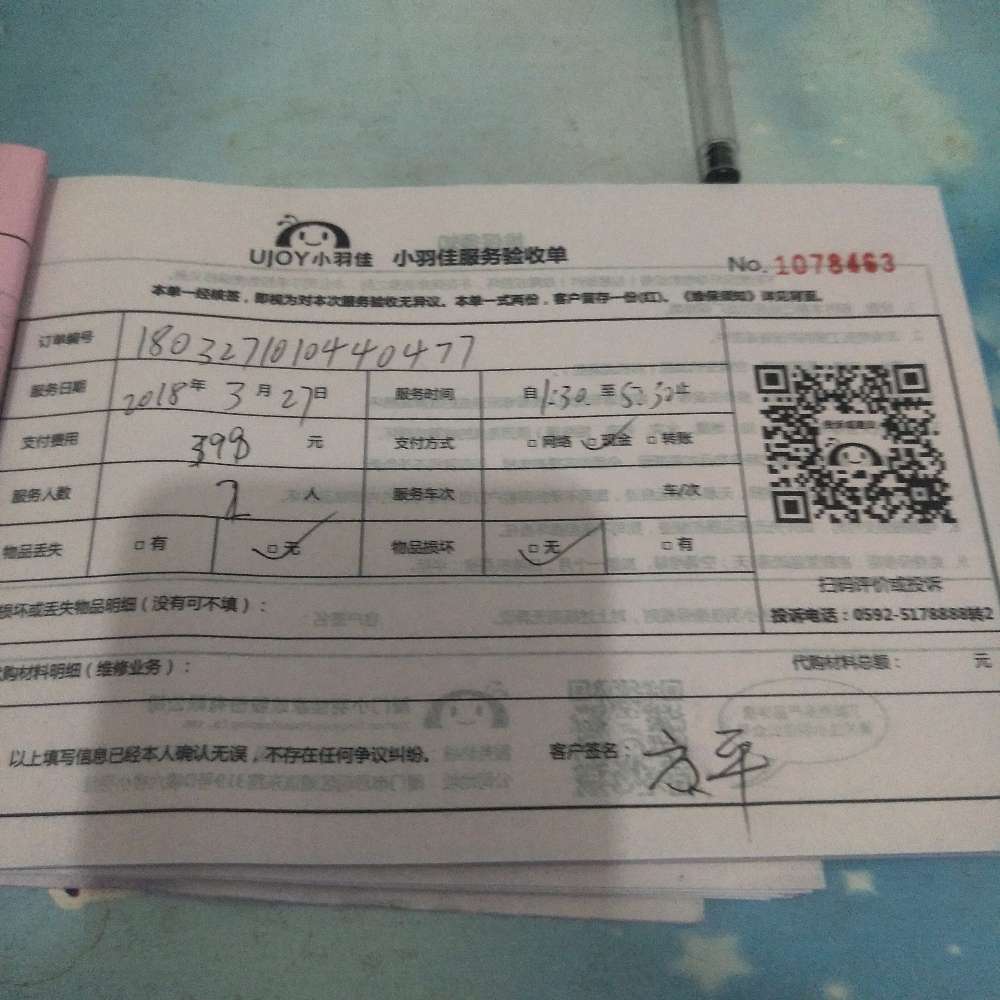 UJOY小羽佳 小羽佳服务验收单
No. 1078463
本单一经核签，即视为对本次服务验收无异议。本单一式两份，客户留存一份(红)。《维保须知》详见背面。
订单编号 18032710104440477
服务日期 2018年3月27日 服务时间 自1:30至5:30止
支付费用 398元 支付方式 □网络 □现金 □转账
服务人数 2人 服务车次 车/次
物品丢失 □有 □无 物品损坏 □无 □有
扫码评价或投诉
损坏或丢失物品明细（没有可不填）：
投诉电话：0592-5178888转2
代购材料明细（维修业务）： 代购材料总额： 元
以上填写信息已经本人确认无误，不存在任何争议纠纷。 客户签名：方平